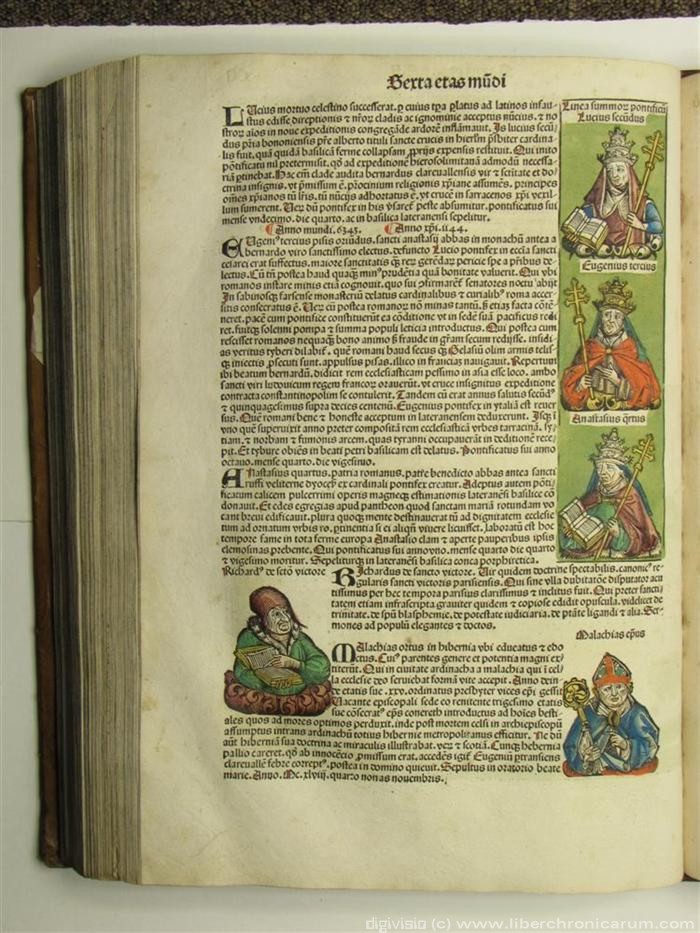 Sexta etas mũdi
Linea summoꝝ pontificũ
Lucius secũdus
LUcius mortuo celestino successerat. ꝙ cuius tꝑa platus ad latinos infau-
stus edisse direptionis ⁊ nr̃oꝝ cladis ac ignominie acceptus nũcius. ⁊ no
stroꝝ aĩos in noue expeditionis congregãde ardorẽ inflamauit. Is lucius secũ-
dus pr̃ia bononiensis pr̃e alberto tituli sancte crucis in hierlm p̃sbiter cardina-
lis fuit. quã quidã basilicã ferme collapsam ꝓprijs expensis restituit. Qui inito
põtificatu nil pretermisit. qd̓ ad expeditionẽ hierosolimitanã admodũ necessa-
riã ꝑtinebat. Hac em̃ clade audita bernardus clareuallensis vir ⁊ sc̃titate et do-
ctrina insignis. vt p̃missum ẽ. ꝓcinium religionis xp̃iane assumẽs. principes
om̃es xp̃ianos tũ lr̃is. tũ nũcijs adhortatus ẽ. vt crucẽ in sarracenos xp̃i vexil-
lum sumerent. Veꝝ dũ pontifex in his v̓saret̃ peste absumitur. pontificatus sui
mense vndecimo. die quarto. ac in basilica lateranensi sepelitur.
Anno mundi. 6343. Anno xp̃i. 1144.
Eugenius tercius
EUgeniꝰ tercius pisis oriũdus. sancti anastasij abbas in monachũ antea a
bernardo viro sanctissimo electus. defuncto Lucio pontifex in eccĩa sancti
cesarei erat suffectus. maiore sanctitatis ꝗ̃ reꝝ gerẽdaꝝ pericie spe a p̃ribus de-
lectus. Cũ tñ postea haud quaꝗ̃ minꝰ prudẽtia quã bonitate valuerit. Qui vbi
romanos instare minis etiã cognouit. quo sui p̃firmarẽt̃ senatores noctu abijt
In sabinosꝗ farfense monasteriũ delatus cardinalibus ⁊ curialibꝰ roma acces-
sitis consecratus ẽ. Veꝝ cũ postea romanoꝝ nõ minas tantũ. sꝫ etiaꝫ facta cõtẽ-
neret. pacẽ cum pontifice constituerũt ea cõditione vt in sedẽ suã pacificus redi-
ret. fuitꝗ solenni pompa ⁊ summa populi leticia introductus. Qui postea cum
resciscet romanos nequaꝗ̃ bono animo sꝫ fraude in grãm secum redijsse. insidi-
as veritus tyberi dilabit̃. quẽ romani haud secus ꝗ̃ Gelasiũ olim armis telis-
ꝗ iniectis ꝓsecuti sunt. appulsus pisas. illico in frãcias nauigauit. Repertum
ibi beatum bernardũ. didicit rem ecclesiasticam pessimo in asia esse loco. ambo
sancti viri ludouicum regem francoꝝ orauerũt. vt cruce insignitus expeditione
contracta constantinopolim se contulerit. Tandem cũ erat annus salutis secũdꝰ
⁊ quinquagesimus supra decies centenũ. Eugenius pontifex in ytaliã est reuer
sus. Quẽ romani bene ⁊ honeste acceptum in lateranensem deduxerunt. Isꝗ i
vno quẽ superuixit anno preter compositã rem ecclesiasticã vrbes tarracinã. sy-
tiam. ⁊ norbam ⁊ fumonis arcem. quas tyranni occupauerãt in deditionẽ rece-
pit. Et tybure obiẽs in beati petri basilicam est delatus. Pontificatus sui anno
octauo. mense quarto. die vigesimo.
Anastasius q̃rtus
ANastasius quartus. patria romanus. patre benedicto abbas antea sancti
ruffi veliterne dyoceẽ ex cardinali pontifex creatur. Adeptus autem põti-
ficatum calicem pulcerrimi operis magneꝗ estimationis lateranẽsi basilice cõ-
donauit. Et edes egregias apud pantheon quod sanctam mariã rotundam vo
cant breui edificauit. plura quoꝗ mente destinauerat tũ ad dignitatem ecclesie
tum ad ornatum vrbis ro. ꝑtinentia si ei aliqñ viuere licuisset. laboratũ est hoc
tempore fame in tota ferme europa Anastasio clam ⁊ aperte pauperibus ipsis
elemosinas prebente. Qui pontificatus sui anno vno. mense quarto die quarto
⁊ vigesimo moritur. Sepeliturꝗ in lateranẽsi basilica conca porphiretica.
Richardꝰ de sctõ victore
RIchardus de sancto victore. Vir quidem doctrine spectabilis. canonicꝰ re-
gularis sancti victoris parisiensis. Qui sine vlla dubitatõe disputator acu
tissimus per hec tempora parisius clarissimus ⁊ inclitus fuit. Qui preter sancti
tatem etiam infrascripta grauiter quidem ⁊ copiose edidit opuscula. videlicet de
trinitate. de spũ blasphemie. de potestate iudiciaria. de ptãte ligandi ⁊ alia. Ser-
mones ad populũ elegantes ⁊ doctos.
Malachias ep̃us
MAlachias ortus in hibernia vbi educatus ⁊ edo
ctus. Cuiꝰ parentes genere et potentia magni ex-
titerũt. Qui in ciuitate ardinacha a malachia qui ĩ cel-
la ecclesie ꝓxio seruiebat formã vite accepit. Anno dein
de etatis sue .xxv. ordinatus presbyter vices ep̃i gessit
Vacante episcopali sede eo renitente trigesimo etatis
sue cõsecratꝰ ep̃s conereth introductus ad hoĩes besti-
ales quos ad mores optimos perduxit. inde post mortem celsi in archiepiscopũ
assumptus intrans ardinachũ totius hibernie metropolitanus efficitur. Ne dũ
aũt hiberniã sua doctrina ac miraculis illustrabat. veꝝ ⁊ scotiã. Cumꝗ hebernia
pallio careret. qd̓ ab innocẽcio ꝓmissum erat. accedẽs igit̃ Eugeniũ ꝑtransiens
clareuallẽ febre correptꝰ. postea in domino quieuit. Sepultus in oratorio beate
marie. Anno. Mc.xlviij. quarto nonas nouembris.
digivisio (c) www.liberchronicarum.com